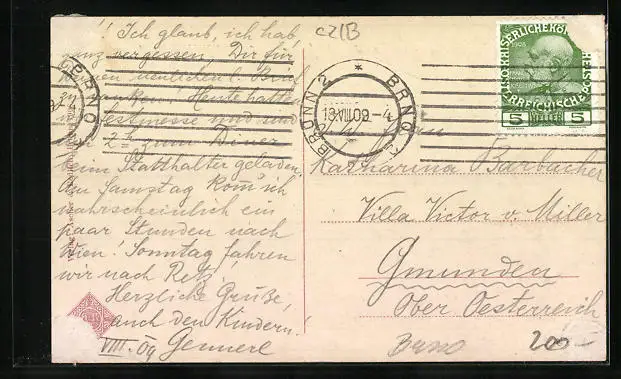 CZ/B
! Ich glaub, ich hab
ganz vergessen, Dir für
neulichen l. Brief
danken! Heute hatte
Festmesse und sind
2h zum Diner
beim Statthalter geladen,
Am Samstag kom̄ ich
wahrscheinlich ein
paar Stunden nach
Wien! Sonntag fahren
wir nach Retz,
Herzliche Grüße,
auch den Kindern!
VIII. 09
BRNO
BRÜNN 2 * BRNO
13.VIII.09.-4
KAIS. KÖNIGLICHE
1908
ÖSTERREICHISCHE
5 HELLER 5
Katharina Barbacher
Villa Victor v. Miller
Gmunden
Ober Oesterreich
Brno
200.-